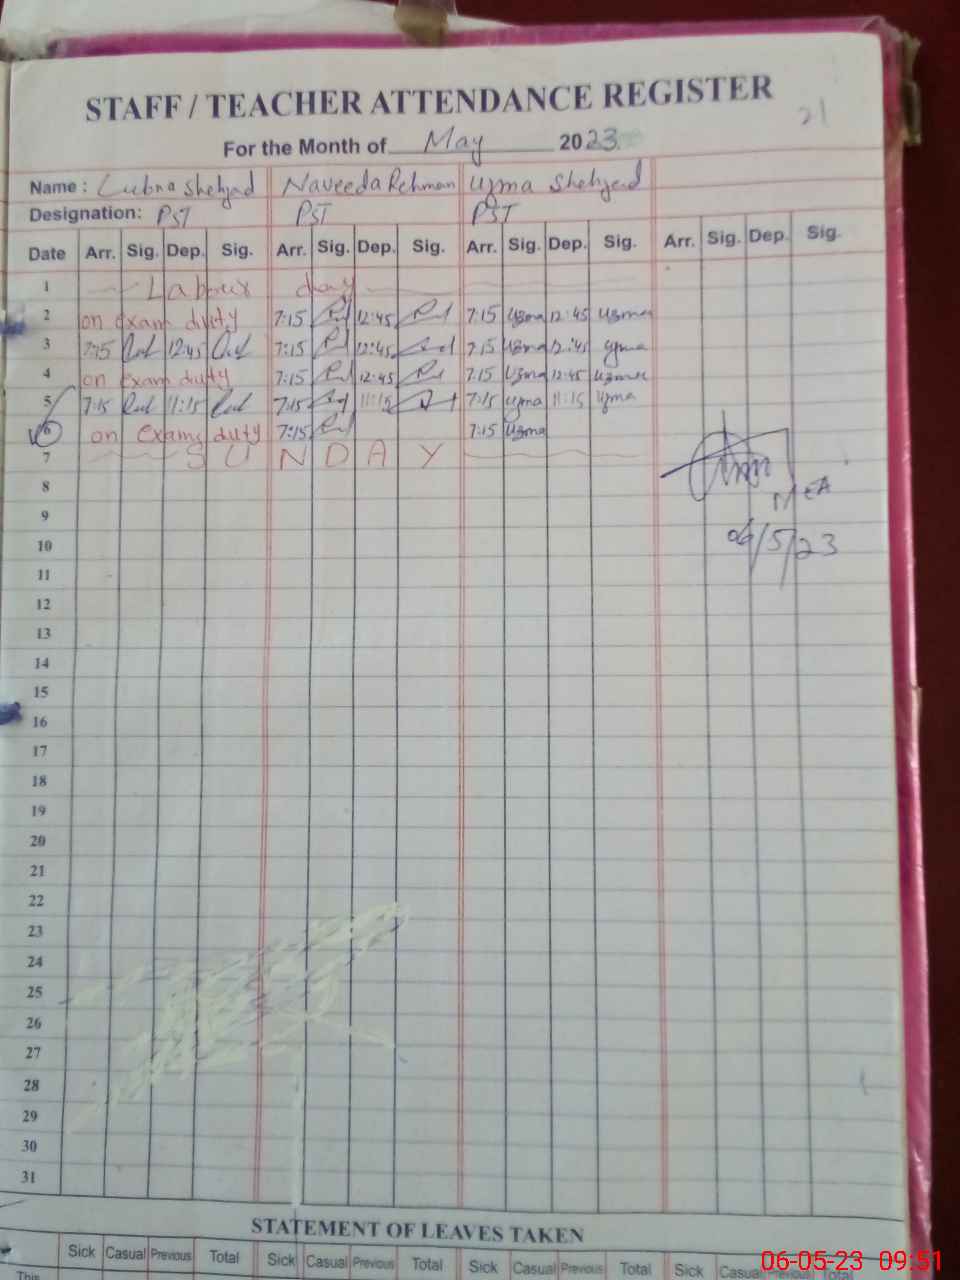 STAFF / TEACHER ATTENDANCE REGISTER
21
For the Month of May 2023
Name : Lubna Shehzad Naveeda Rehman Uzma Shehzad
Designation: PST PST PST
Date Arr. Sig. Dep. Sig. Arr. Sig. Dep. Sig. Arr. Sig. Dep. Sig. Arr. Sig. Dep. Sig.
1 Labour day
2 on exam duty 7:15 12:45 7:15 Uzma 12:45 Uzma
3 7:15 12:45 7:15 12:45 7:15 Uzma 12:45 Uzma
4 on exam duty 7:15 12:45 7:15 Uzma 12:45 Uzma
5 7:15 11:15 7:15 11:15 7:15 Uzma 11:15 Uzma
6 on exams duty 7:15 7:15 Uzma
7 SUNDAY
8
MEA
9
10
06/5/23
11
12
13
14
15
16
17
18
19
20
21
22
23
24
25
26
27
28
29
30
31
STATEMENT OF LEAVES TAKEN
Sick Casual Previous Total Sick Casual Previous Total Sick Casual Previous Total Sick Casual Previous Total
This
06-05-23 09:51